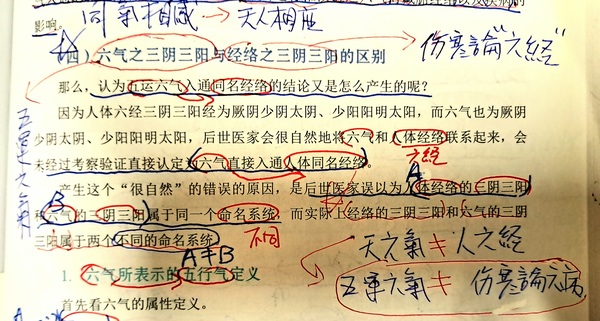 同氣相感→天人相應
影响。
(四)六气之三阴三阳与经络之三阴三阳的区别
伤寒論"六經"
那么,认为五运六气入通同名经络的结论又是怎么产生的呢?
因为人体六经三阴三阳经为厥阴少阴太阴、少阳阳明太阳,而六气也为厥阴
少阴太阴、少阳阳明太阳,后世医家会很自然地将六气和人体经络联系起来,会
六经
未经过考察验证直接认定为六气直接入通人体同名经络。
A
产生这个“很自然”的错误的原因,是后世医家误以为人体经络的三阴三阳
B
和六气的三阴三阳属于同一个命名系统,而实际上经络的三阴三阳和六气的三阴
三阳属于两个不同的命名系统。
不同
A≠B
天之氣≠人之經
五運六氣≠伤寒論六病
1. 六气所表示的五行气定义
首先看六气的属性定义。